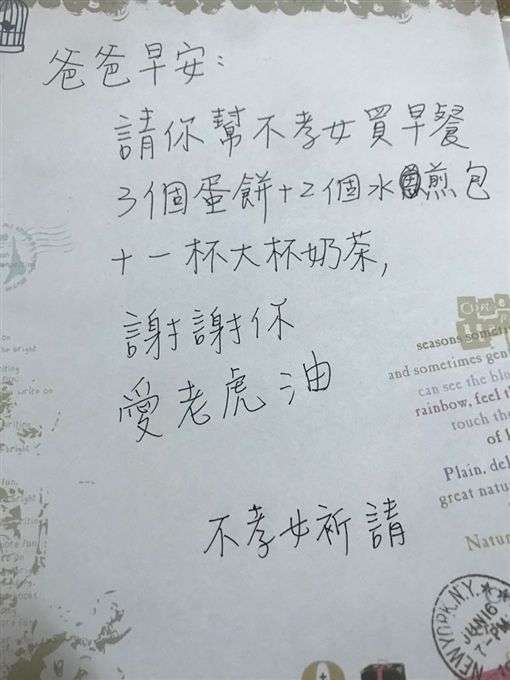 爸爸早安：
請你幫不孝女買早餐
3個蛋餅+2個水煎包
+一杯大杯奶茶,
謝謝你
愛老虎油
不孝女祈請
seasons
and sometimes
can see the
rainbow, feel
touch the
of
Plain,
great
NEW YORK, N.Y.
JUN 16
7-PM